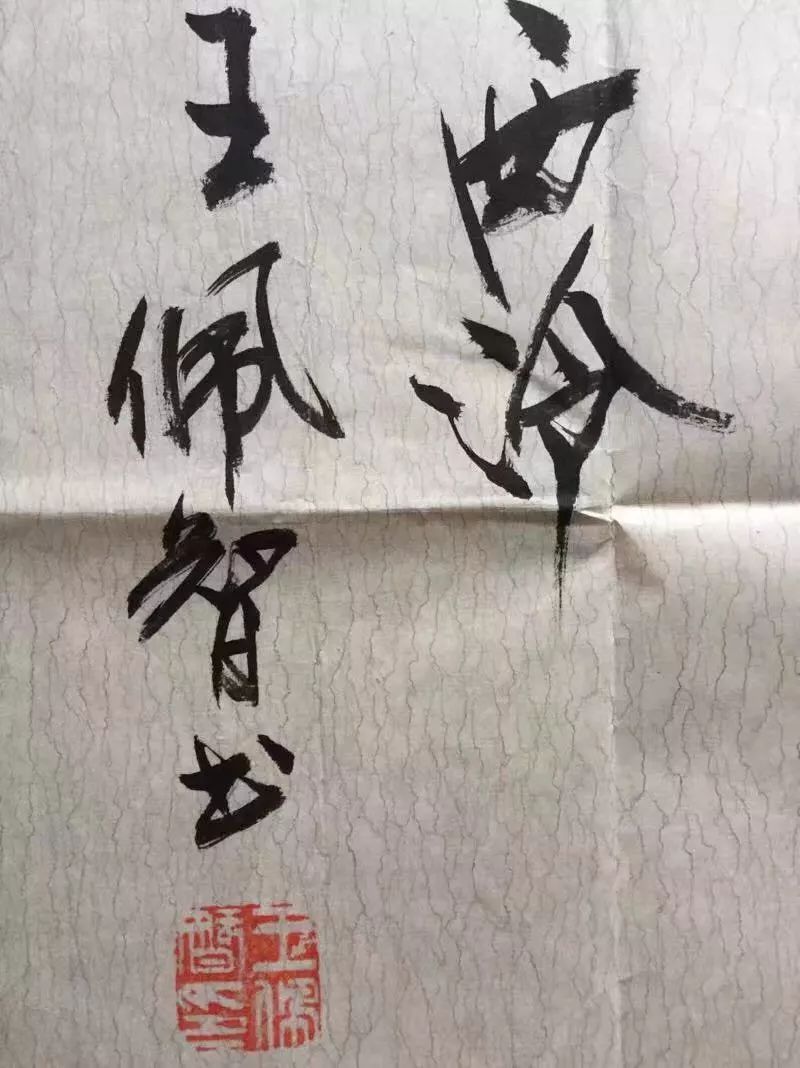 西泠
王佩智书
王佩
智印